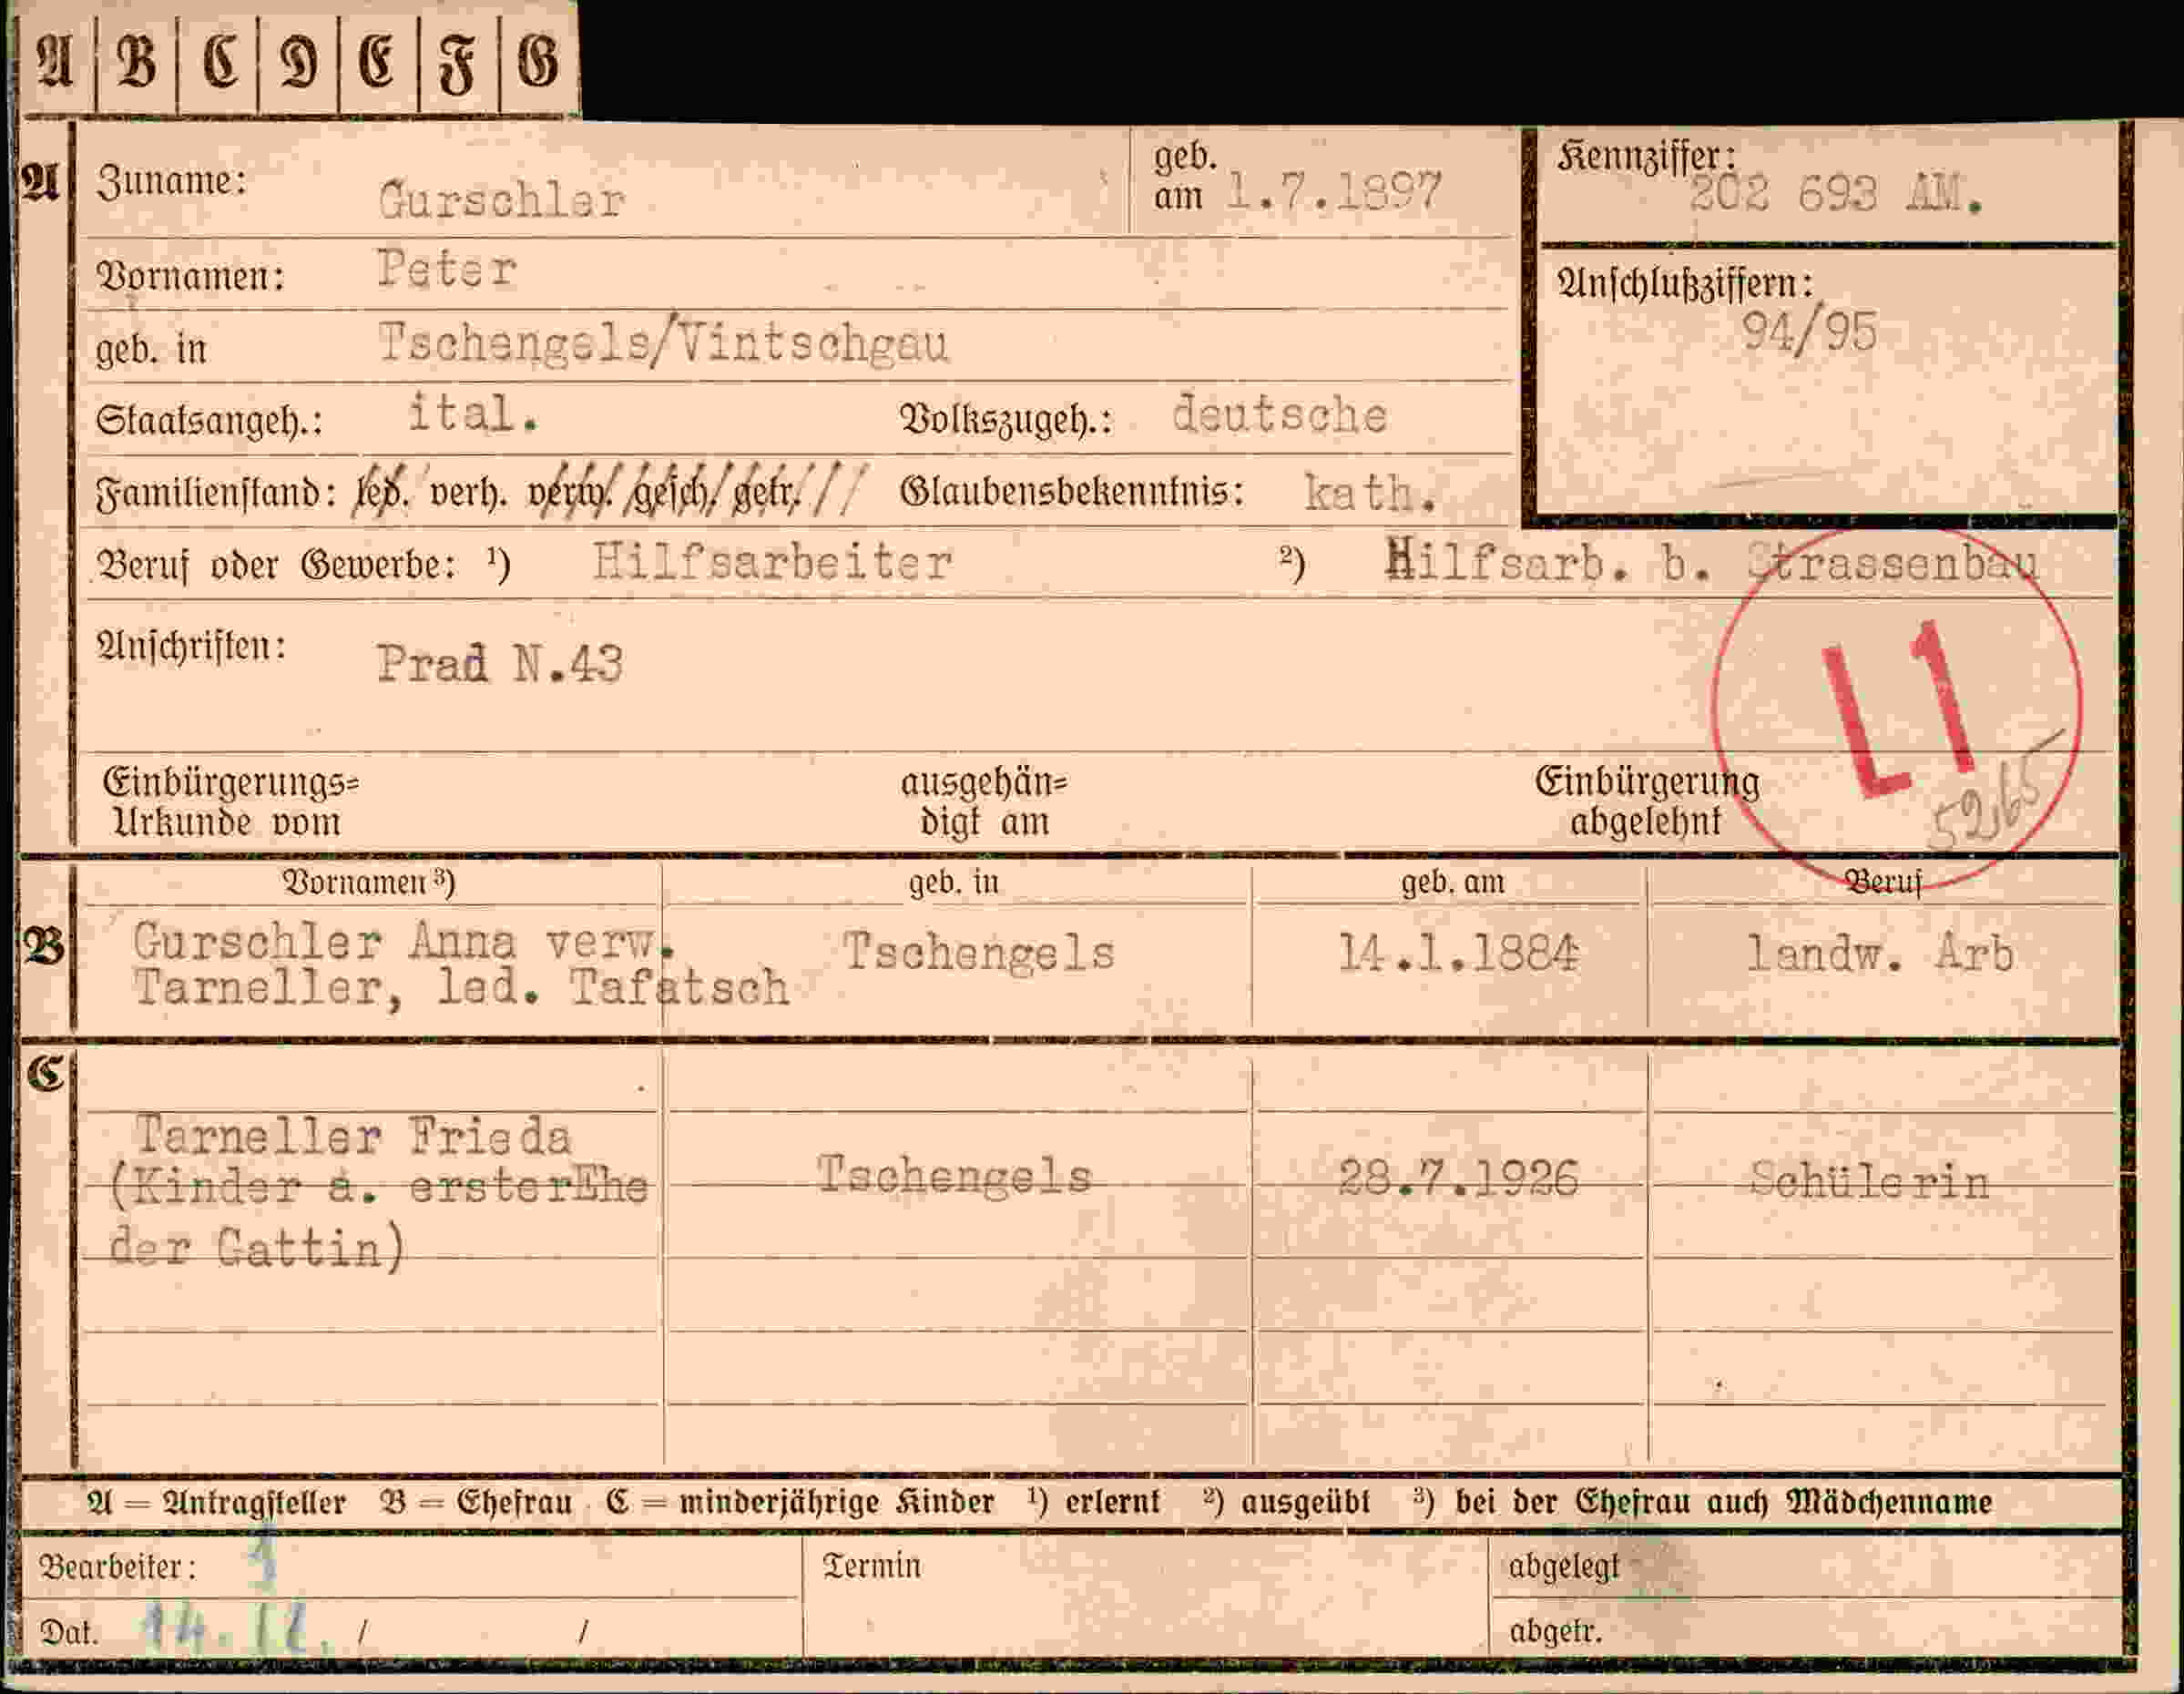 A B C D E F G
A Zuname: Gurschler geb. am 1.7.1897 Kennziffer: 202 693 AM.
Vornamen: Peter Anschlußziffern: 94/95
geb. in Tschengels/Vintschgau
Staatsangeh.: ital. Volkszugeh.: deutsche
Familienstand: led. verh. verw. gesch. getr. Glaubensbekenntnis: kath.
Beruf oder Gewerbe: ¹) Hilfsarbeiter ²) Hilfsarb. b. Strassenbau
Anschriften: Prad N.43
L1
Einbürgerungs= ausgehän= Einbürgerung
Urkunde vom digt am abgelehnt
Vornamen ³) geb. in geb. am Beruf
B Gurschler Anna verw. Tschengels 14.1.1884 landw. Arb
Tarneller, led. Tafatsch
C
Tarneller Frieda
(Kinder a. ersterEhe Tschengels 28.7.1926 Schülerin
der Gattin)
A = Antragsteller B = Ehefrau C = minderjährige Kinder ¹) erlernt ²) ausgeübt ³) bei der Ehefrau auch Mädchenname
Bearbeiter: 1 Termin abgelegt
Dat. / / abgetr.